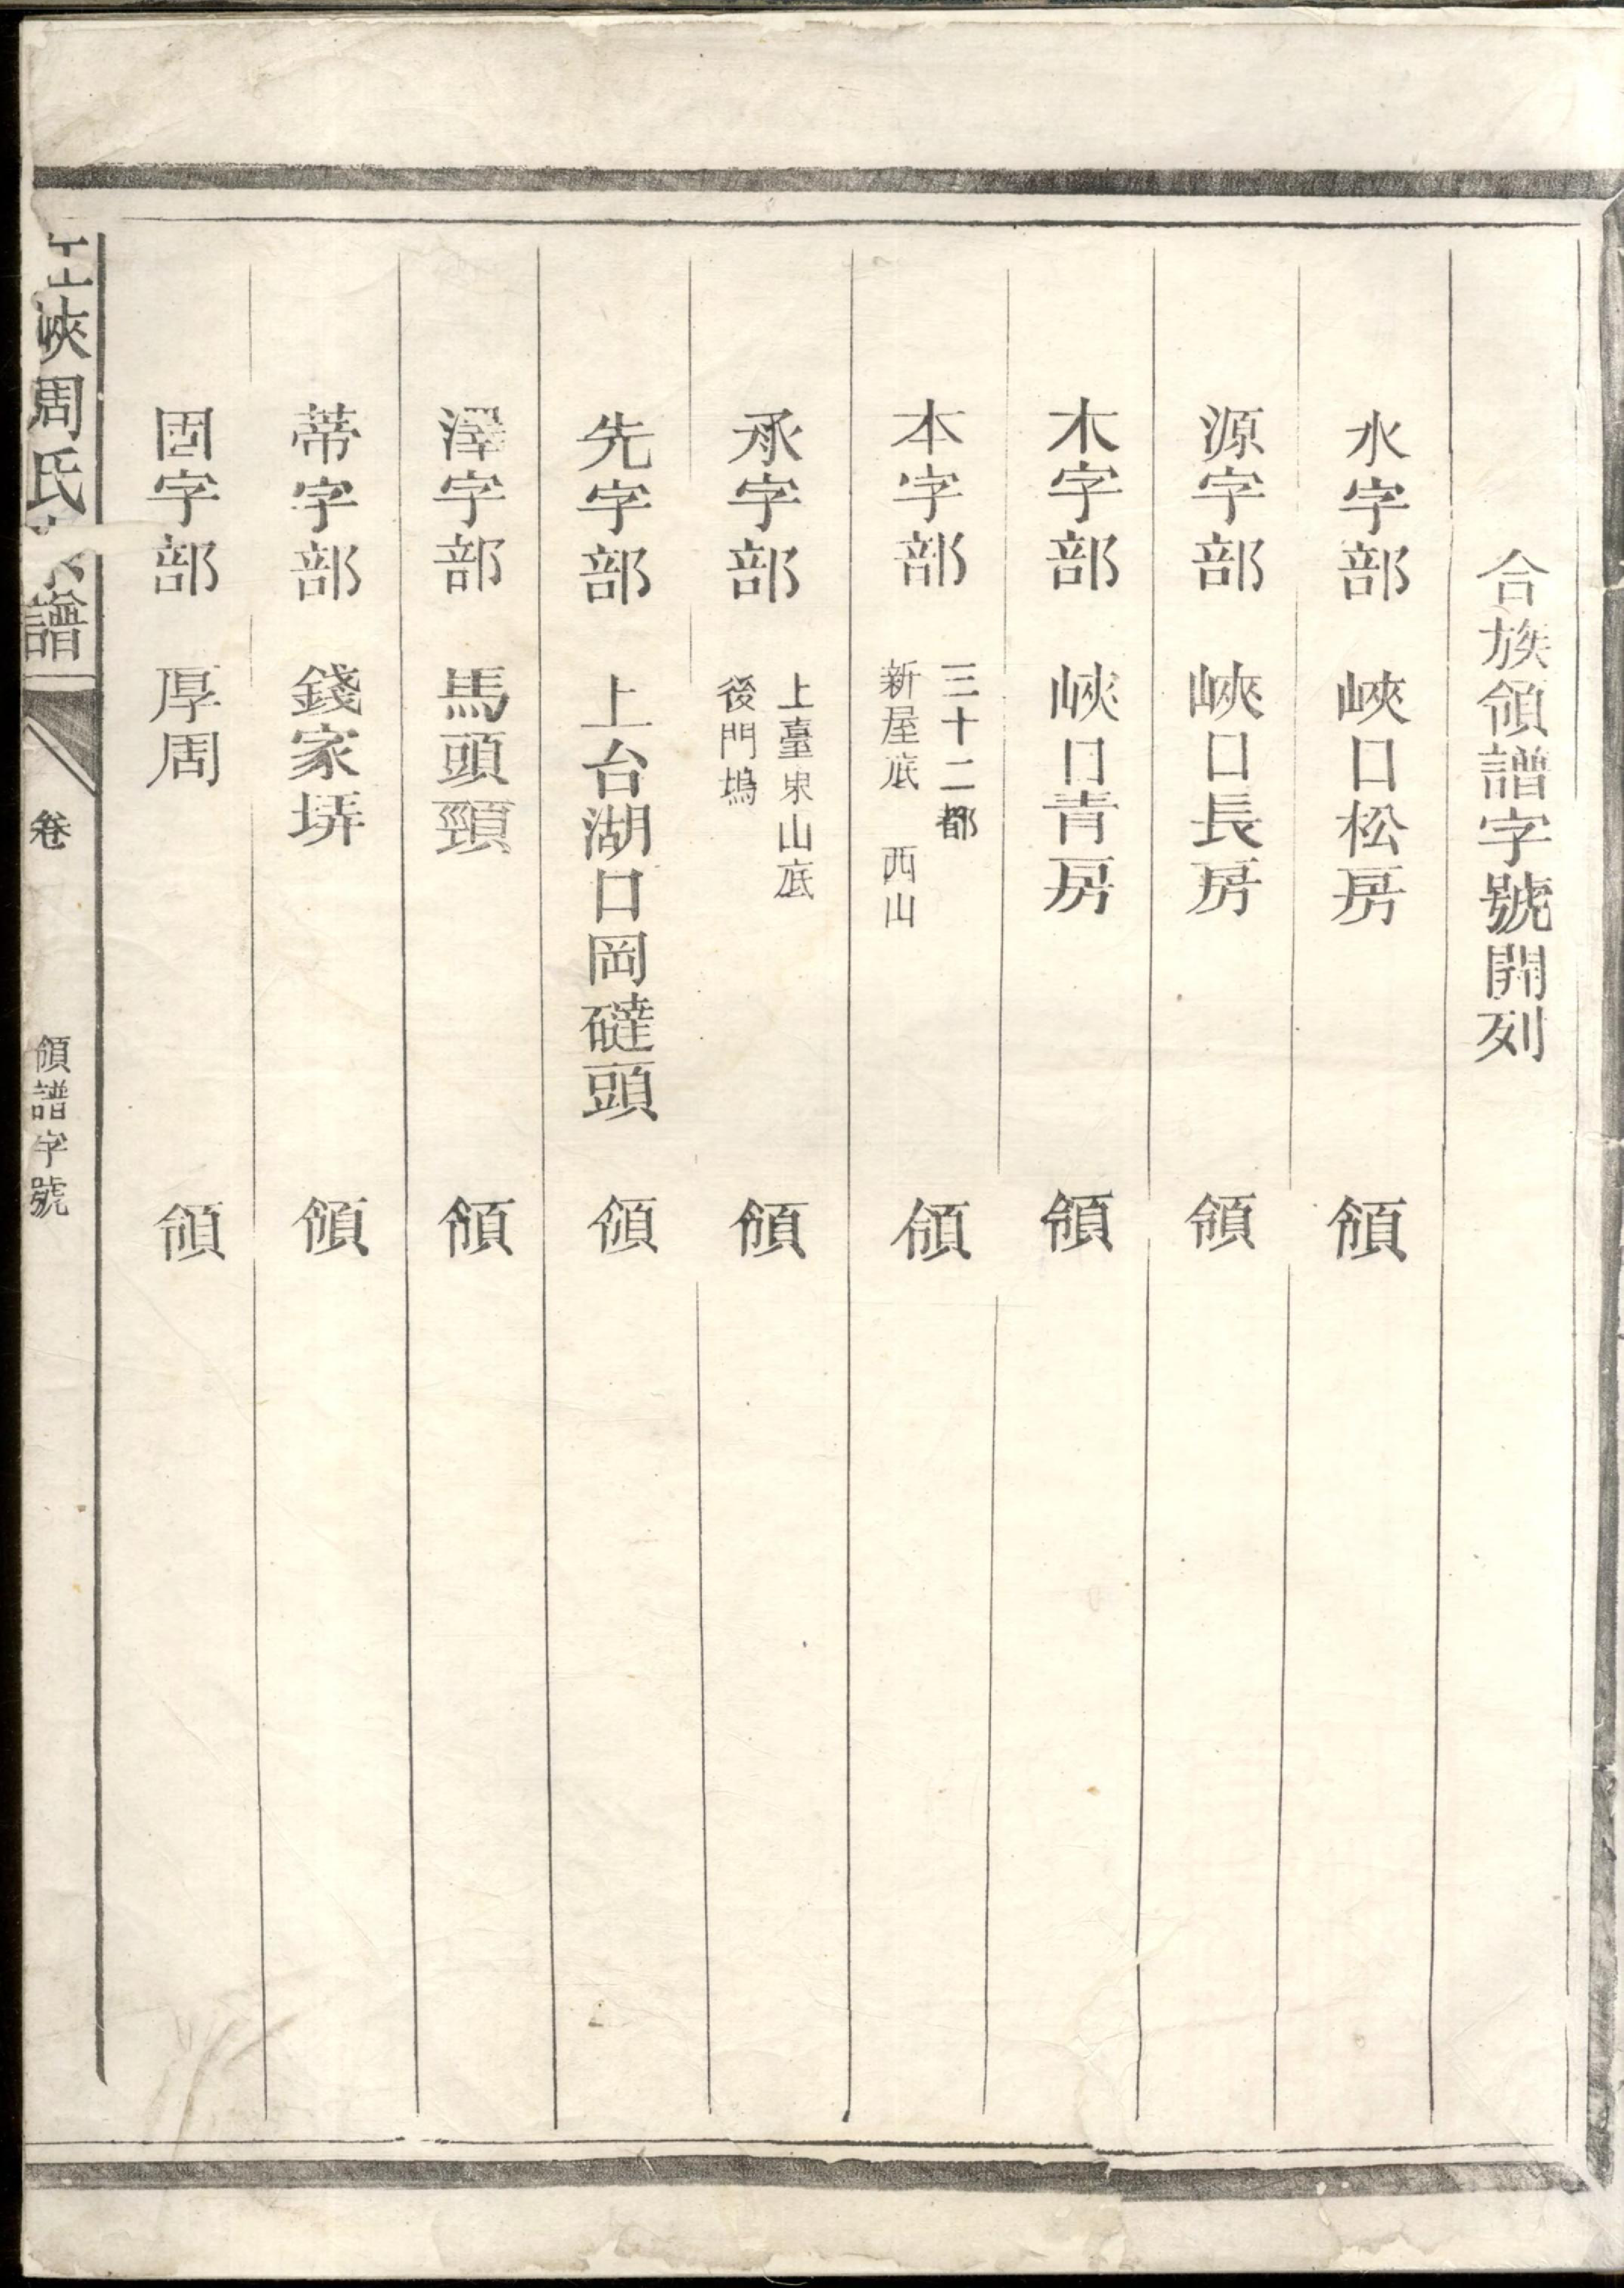 合族領譜字號開列
水字部 峽口松房 領
源字部 峽口長房 領
木字部 峽口青房 領
本字部 三十二都
新屋底 西山 領
承字部 上臺東山底
後門塢 領
先字部 上台湖口岡䃮頭 領
澤字部 馬頭頸 領
蒂字部 錢家塝 領
固字部 厚周 領
峽周氏 譜
卷
領譜字號